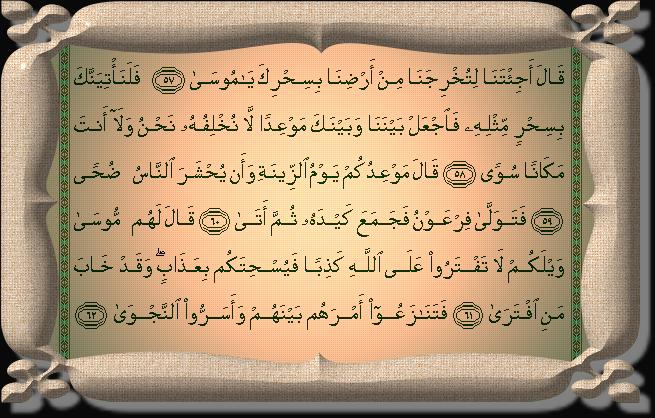 قَالَ أَجِئْتَنَا لِتُخْرِجَنَا مِنْ أَرْضِنَا بِسِحْرِكَ يَـٰمُوسَىٰ ﴿٥٧﴾ فَلَنَأْتِيَنَّكَ
بِسِحْرٍ مِّثْلِهِۦ فَٱجْعَلْ بَيْنَنَا وَبَيْنَكَ مَوْعِدًا لَّا نُخْلِفُهُۥ نَحْنُ وَلَآ أَنتَ
مَكَانًا سُوًى ﴿٥٨﴾ قَالَ مَوْعِدُكُمْ يَوْمُ ٱلزِّينَةِ وَأَن يُحْشَرَ ٱلنَّاسُ ضُحًى
﴿٥٩﴾ فَتَوَلَّىٰ فِرْعَوْنُ فَجَمَعَ كَيْدَهُۥ ثُمَّ أَتَىٰ ﴿٦٠﴾ قَالَ لَهُم مُّوسَىٰ
وَيْلَكُمْ لَا تَفْتَرُوا۟ عَلَى ٱللَّـهِ كَذِبًا فَيُسْحِتَكُم بِعَذَابٍ ۖ وَقَدْ خَابَ
مَنِ ٱفْتَرَىٰ ﴿٦١﴾ فَتَنَـٰزَعُوٓا۟ أَمْرَهُم بَيْنَهُمْ وَأَسَرُّوا۟ ٱلنَّجْوَىٰ ﴿٦٢﴾